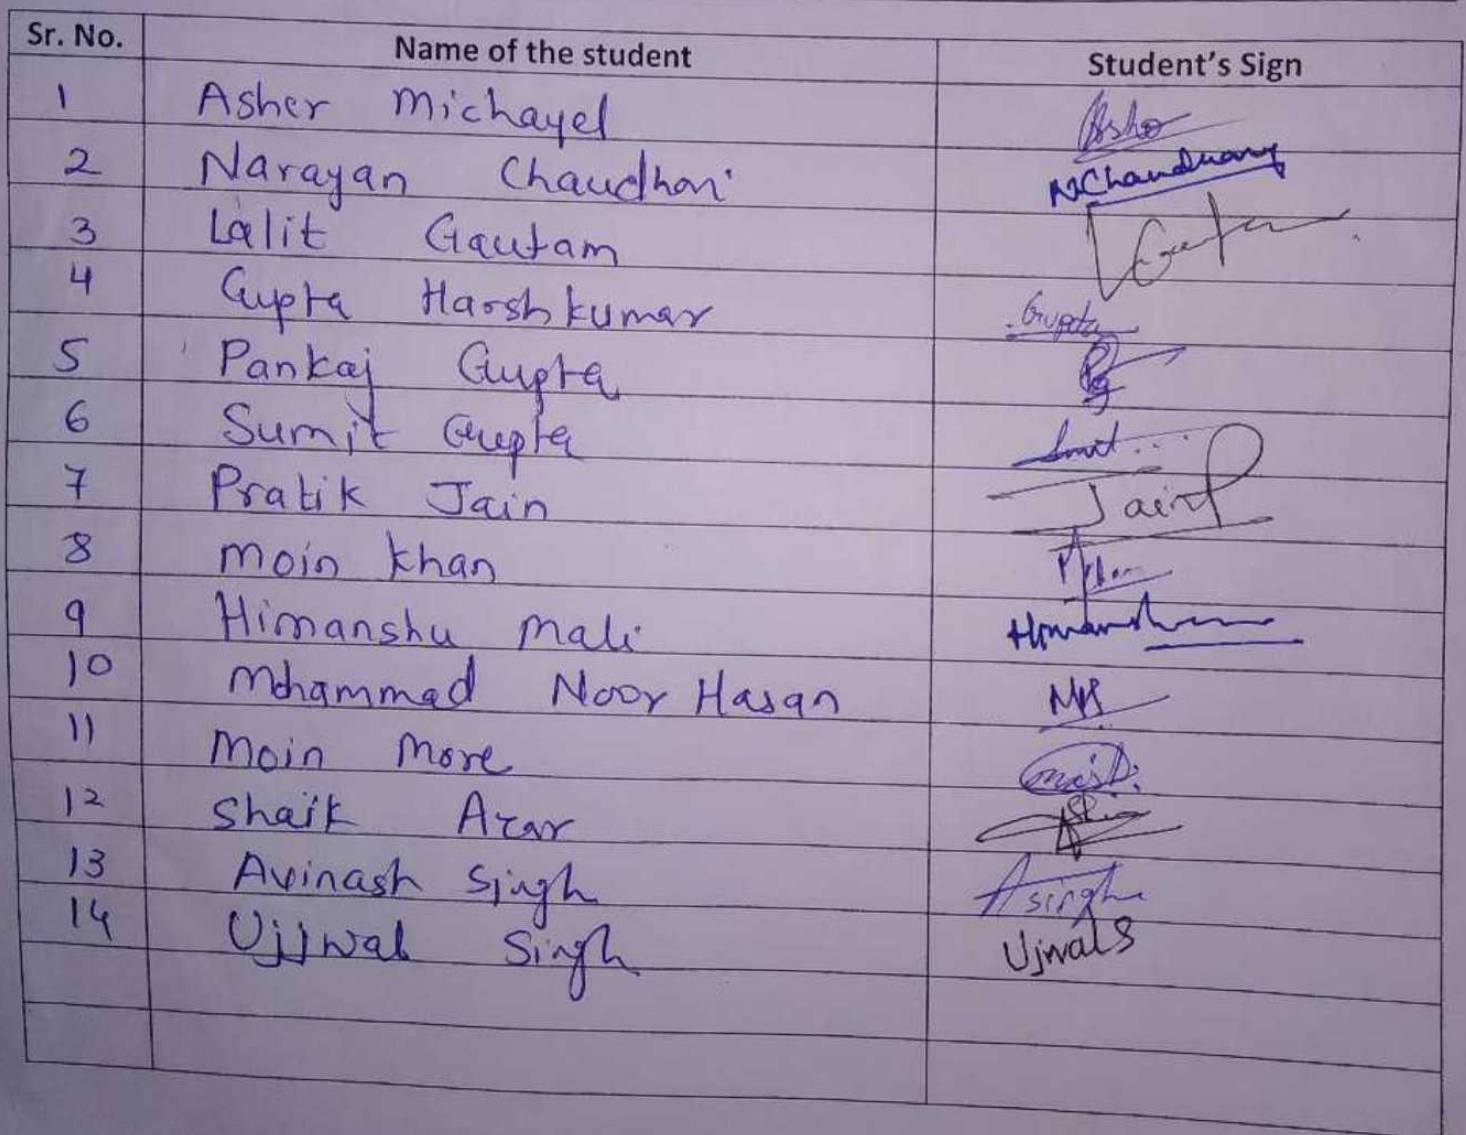 Sr. No. Name of the student Student's Sign
1 Asher Michayel
2 Narayan Chaudhari NChaudhary
3 Lalit Gautam
4 Gupta Harshkumar Gupta
5 Pankaj Gupta
6 Sumit Gupta
7 Pratik Jain Jain
8 Moin Khan
9 Himanshu Mali
10 Mohammad Noor Hasan
11 Moin More
12 Shaik Azar
13 Avinash Singh Asingh
14 Ujjwal Singh Ujwal S